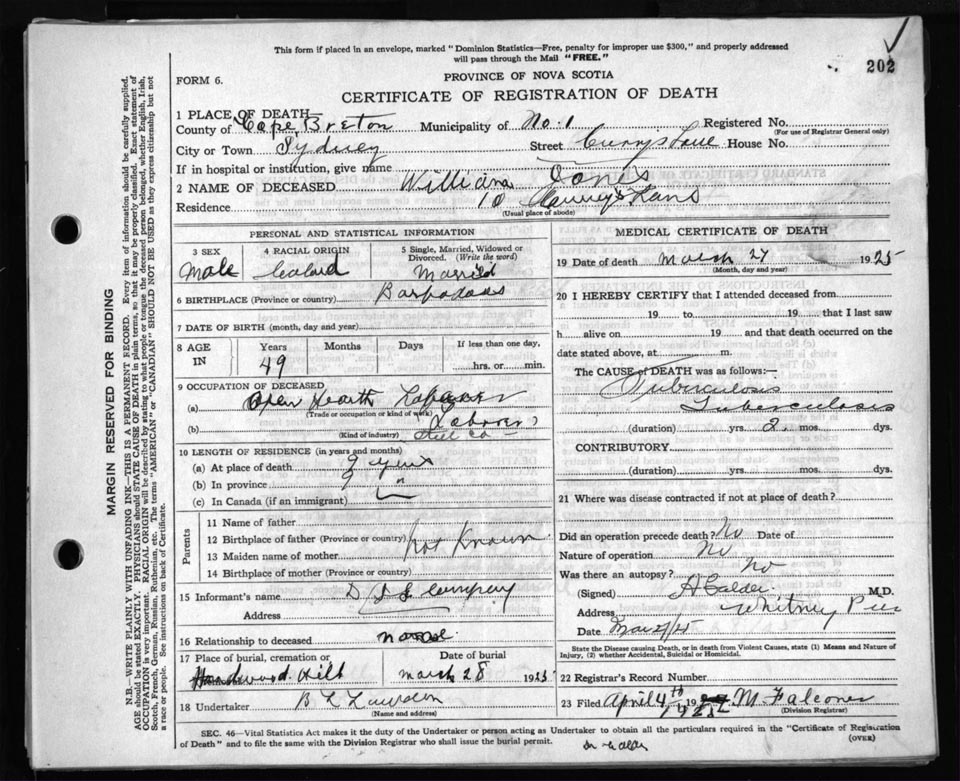 This form if placed in an envelope, marked "Dominion Statistics—Free, penalty for improper use $300," and properly addressed
will pass through the Mail "FREE."
202
FORM 6.
PROVINCE OF NOVA SCOTIA
CERTIFICATE OF REGISTRATION OF DEATH
1 PLACE OF DEATH
County of Cape Breton Municipality of No. 1 Registered No.
(For use of Registrar General only)
City or Town Sydney Street House No.
If in hospital or institution, give name
2 NAME OF DECEASED William Jones
Residence 10
(Usual place of abode)
PERSONAL AND STATISTICAL INFORMATION
3 SEX 4 RACIAL ORIGIN 5 Single, Married, Widowed or Divorced. (Write the word)
Male Married
6 BIRTHPLACE (Province or country) Barbadoes
7 DATE OF BIRTH (month, day and year)
8 AGE IN Years Months Days If less than one day,
49 hrs. or min.
9 OCCUPATION OF DECEASED
(a) Open Hearth Laborer
(Trade or occupation or kind of work)
(b) Laborer
(Kind of industry) Steel Co
10 LENGTH OF RESIDENCE (in years and months)
(a) At place of death 9 years
(b) In province 9 "
(c) In Canada (if an immigrant)
Parents
11 Name of father
12 Birthplace of father (Province or country) Not Known
13 Maiden name of mother
14 Birthplace of mother (Province or country)
15 Informant's name Company
Address
16 Relationship to deceased
17 Place of burial, cremation or Date of burial
Hardwood Hill March 28 1925
18 Undertaker
(Name and address)
MEDICAL CERTIFICATE OF DEATH
19 Date of death March 27 1925
(Month, day and year)
20 I HEREBY CERTIFY that I attended deceased from
19 to 19 that I last saw
h alive on 19 and that death occurred on
date stated above, at m.
The CAUSE of DEATH was as follows:—
Tuberculosis
Tuberculosis
(duration) yrs. 2 mos. dys.
CONTRIBUTORY
(duration) yrs. mos. dys.
21 Where was disease contracted if not at place of death?
Did an operation precede death? No Date of
Nature of operation No
Was there an autopsy? No
(Signed) A Calder M.D.
Address Whitney Pier
Date
State the Disease causing Death, or in death from Violent Causes, state (1) Means and Nature of
Injury, (2) whether Accidental, Suicidal or Homicidal.
22 Registrar's Record Number
23 Filed April 4th 19 M. Falconer
(Division Registrar)
SEC. 46—Vital Statistics Act makes it the duty of the Undertaker or person acting as Undertaker to obtain all the particulars required in the "Certificate of Registration
of Death" and to file the same with the Division Registrar who shall issue the burial permit.
(OVER)
MARGIN RESERVED FOR BINDING
N.B.—WRITE PLAINLY WITH UNFADING INK—THIS IS A PERMANENT RECORD. Every item of information should be carefully supplied.
AGE should be stated EXACTLY. PHYSICIANS should STATE CAUSE OF DEATH in plain terms, so that it may be properly classified. Exact statement of
OCCUPATION is very important. RACIAL ORIGIN will be described by stating to what people or tongue the deceased person belonged, whether English, Irish,
Scotch, French, German, Russian, Ruthenian, etc. The terms "AMERICAN" or "CANADIAN" SHOULD NOT BE USED as they express citizenship but not
a race or people. See instructions on back of Certificate.